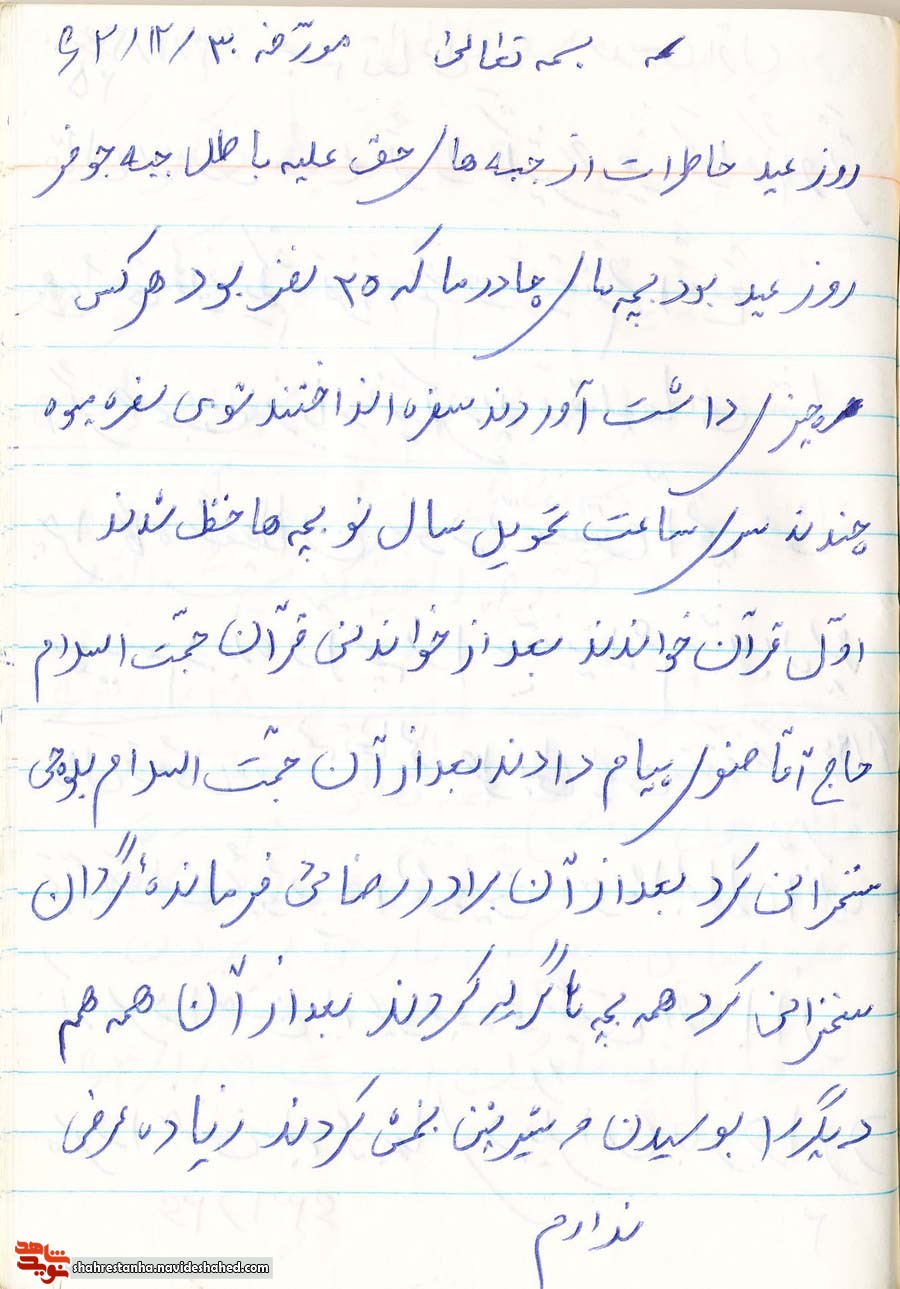 بسمه تعالی مورّخه ۶۲/۱۲/۳۰
روز عید خاطرات از جبهه های حق علیه باطل جبهه جوفر
روز عید بود بچه های چادر ما که ۲۵ نفر بود هر کس
هرچیزی داشت آوردند سفره انداختند توی سفره میوه
چندند سر ساعت تحویل سال نو بچه ها خظ شدند
اوّل قرآن خواندند بعد از خواندنی قرآن حجّت اسلام
حاج آقا پیام دادند بعد از آن حجّت اسلام
سخنرانی کرد بعد از آن برادر رضائی فرماندهٔ گردان
سخنرانی کرد همه بچه ها گریه کردند بعد از آن همه هم
دیگر را بوسیدن و شیرینی بخش کردند زیاده عرضی
ندارم
نوید شاهد
shahrestanha.navideshahed.com